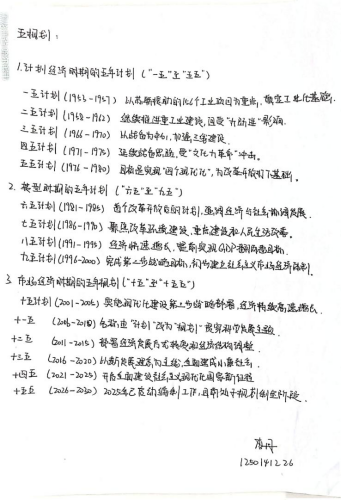 五年规划：
1.计划经济时期的五年计划（"一五"至"五五"）
一五计划（1953-1957）以苏联援助的156个工业项目为重点，奠定工业化基础。
二五计划（1958-1962）继续推进重工业建设，因受"大跃进"影响。
三五计划（1966-1970）以战备为中心，加强三线建设。
四五计划（1971-1975）延续战备思路，受"文化大革命"冲击。
五五计划（1976-1980）目标是实现"四个现代化"，为改革开放打下基础。
2. 转型时期的五年计划（"六五"至"九五"）
六五计划（1981-1985）首个改革开放后的计划，强调经济与社会协调发展。
七五计划（1986-1990）聚焦改革环境建设，重点建设和人民生活改善。
八五计划（1991-1995）经济高速增长，提前实现GDP翻两番目标。
九五计划（1996-2000）完成第二步战略目标，初步建立社会主义市场经济体制。
3. 市场经济时期的五年规划（"十五"至"十五五"）
十五计划（2001-2005）实施现代化建设第三步战略部署，经济持续高速增长。
十一五 （2006-2010）名称由"计划"改为"规划"，贯穿科学发展主线。
十二五 （2011-2015）部署经济发展方式转变和经济结构调整。
十三五 （2016-2020）以新发展理念为主线，全面建成小康社会。
十四五 （2021-2025）开启全面建设社会主义现代化国家新征程
十五五 （2026-2030）2025年已启动编制工作，目前处于规划制定阶段。
1250141226